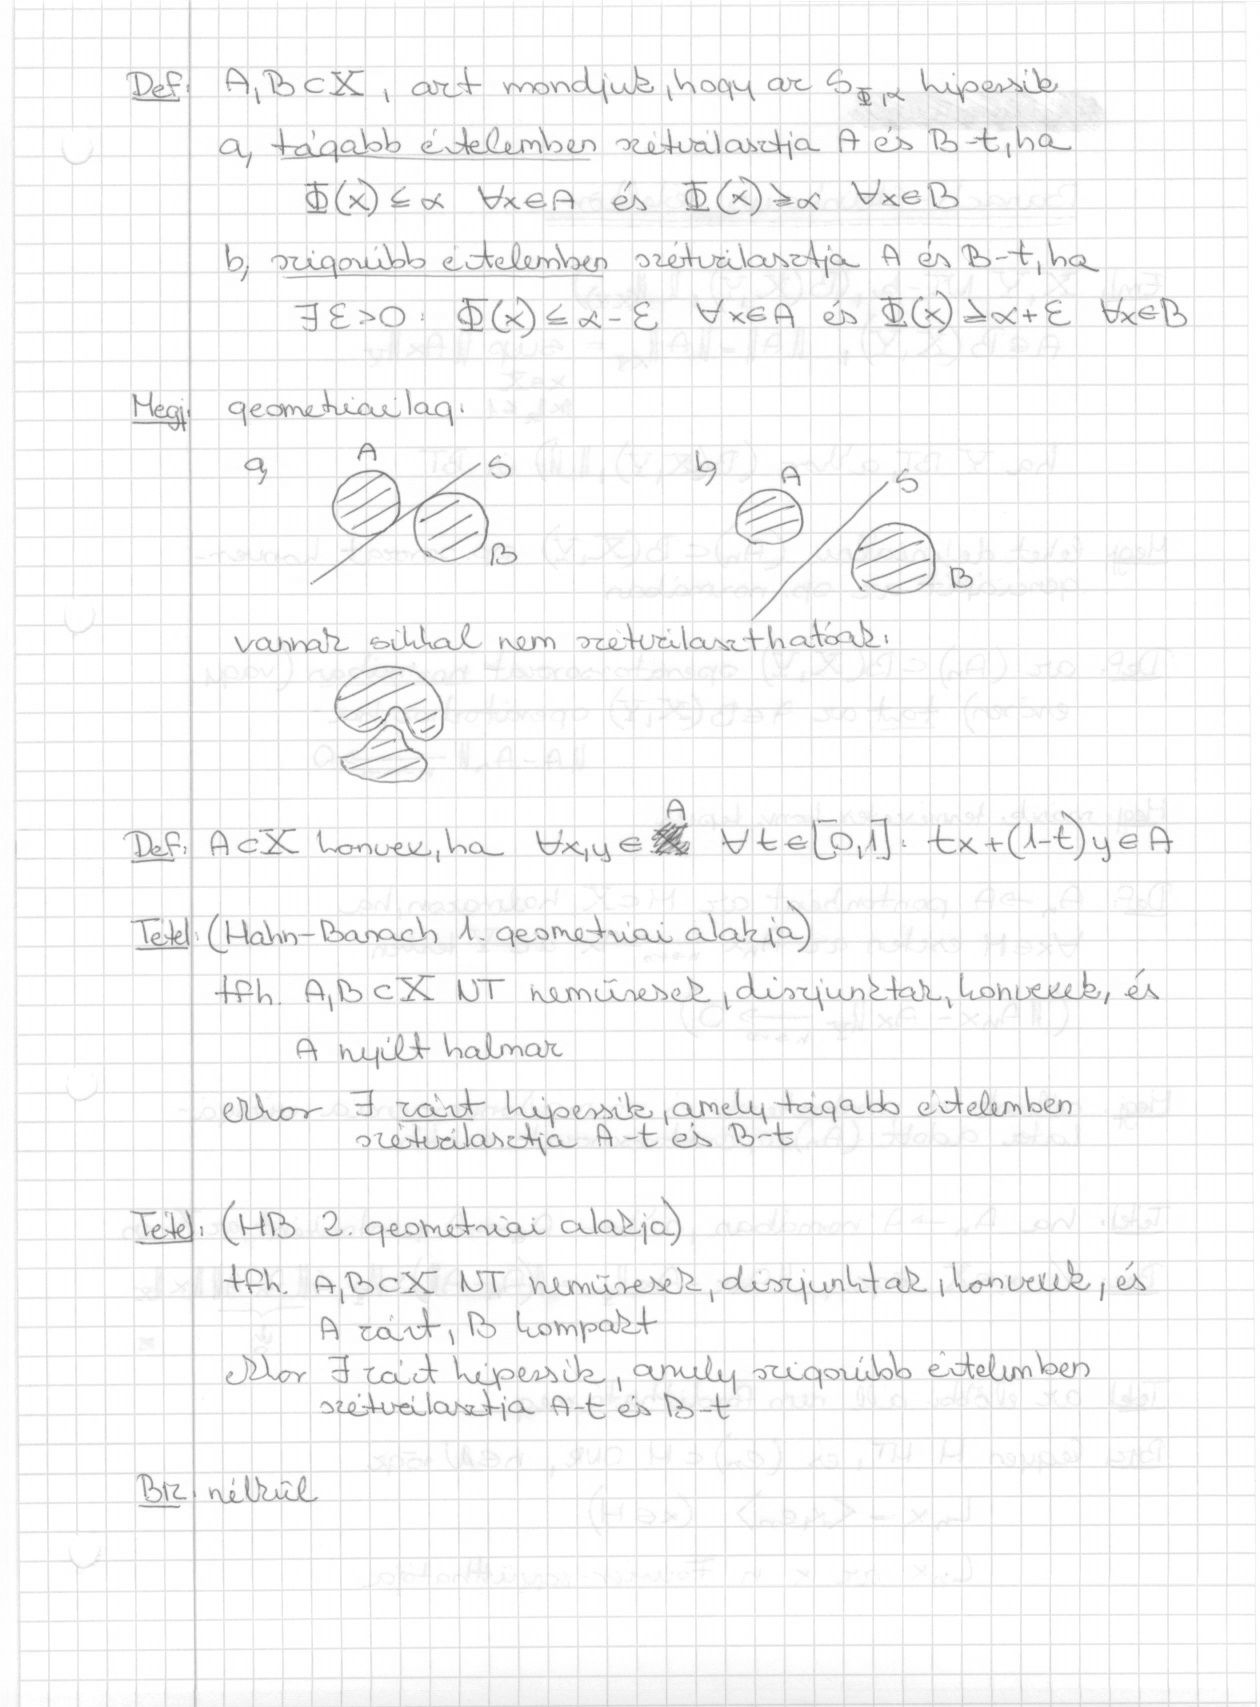 Def: A, B ⊂ X, azt mondjuk, hogy az S_{Φ,α} hipersík
a, tágabb értelemben szétválasztja A és B-t, ha
Φ(x) ≤ α ∀x∈A és Φ(x) ≥ α ∀x∈B
b, szigorúbb értelemben szétválasztja A és B-t, ha
∃ε>0: Φ(x) ≤ α-ε ∀x∈A és Φ(x) ≥ α+ε ∀x∈B
Megj: geometriailag:
a, A S B
b, A S B
vannak síkkal nem szétválaszthatóak:
A
Def: A⊂X konvex, ha ∀x,y ∈ ∀t∈[0,1]: tx+(1-t)y∈A
Tétel: (Hahn-Banach 1. geometriai alakja)
tfh. A, B ⊂ X NT nemüresek, diszjunktak, konvexek, és
A nyílt halmaz
ekkor ∃ zárt hipersík, amely tágabb értelemben
szétválasztja A-t és B-t
Tétel: (HB 2. geometriai alakja)
tfh. A, B ⊂ X NT nemüresek, diszjunktak, konvexek, és
A zárt, B kompakt
ekkor ∃ zárt hipersík, amely szigorúbb értelemben
szétválasztja A-t és B-t
Biz: nélkül